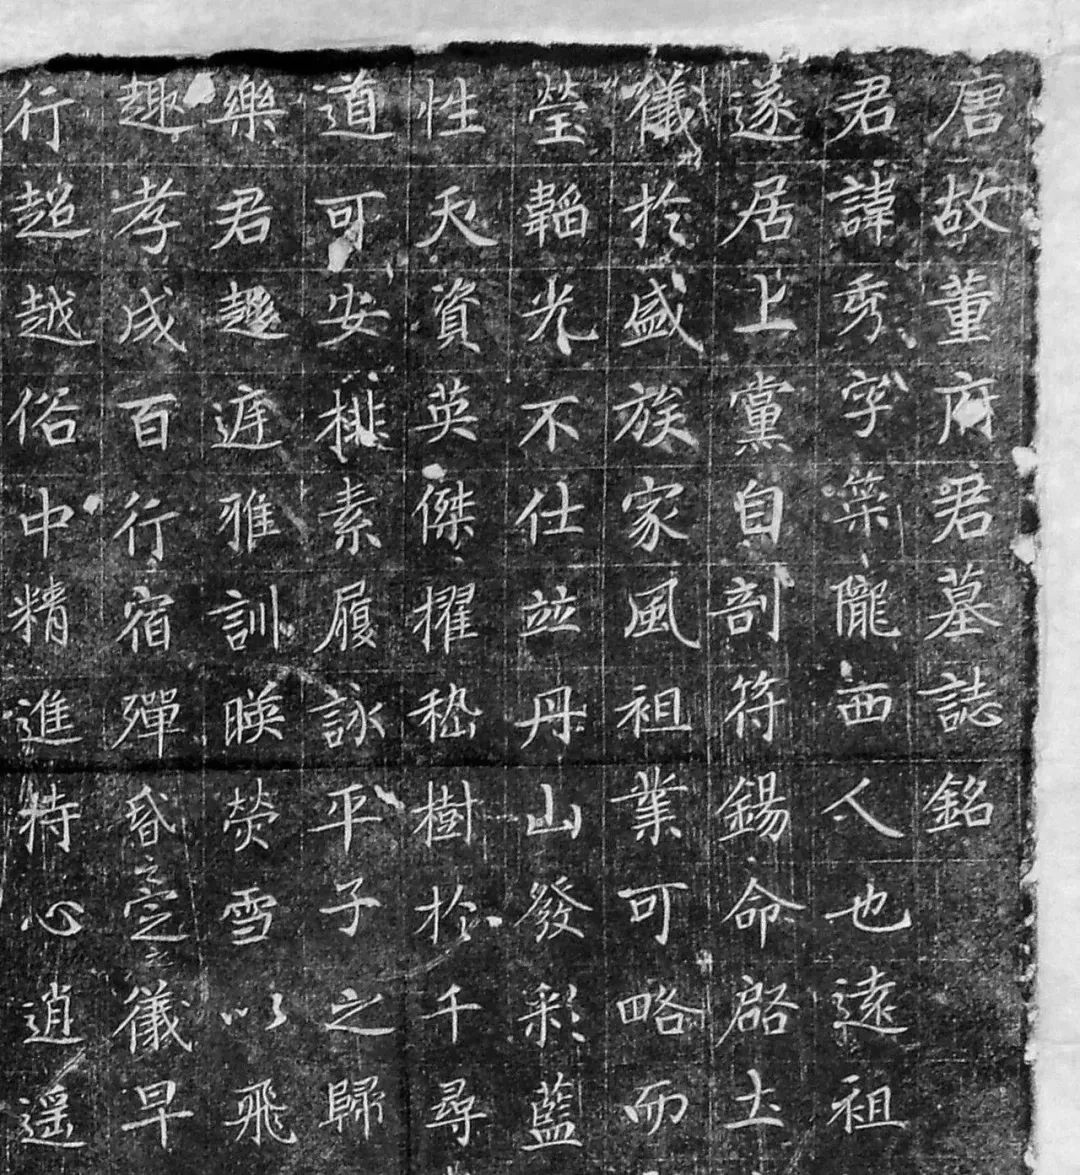 唐故董府君墓誌銘
君諱秀字榮隴西人也遠祖
遂居上黨自剖符錫命啓土
儀於盛族家風祖業可略而
瑩韜光不仕並丹山發彩藍
性天資英傑擢嵇樹於千尋
道可安棑素履詠平子之歸
樂君趍遊雅訓暎熒雪以飛
趣孝成百行宿殫昏定之儀早
行超越俗中精進持心逍遥